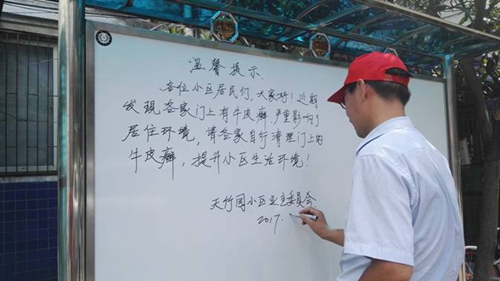 温馨提示
各位小区居民们,大家好!近期
发现各家门上有牛皮癣严重影响了
居住环境,请各家自行清理门上的
牛皮癣,提升小区生活环境!
天竹园小区业主委员会
2017.